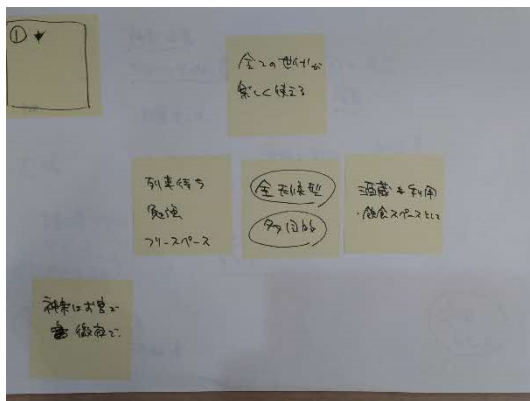 ①
全ての世代が
楽しく使える
列車待ち
勉強
フリースペース
全天候型
多目的
酒蔵を利用
・飲食スペースとして
神楽はお宮で
徹夜で.